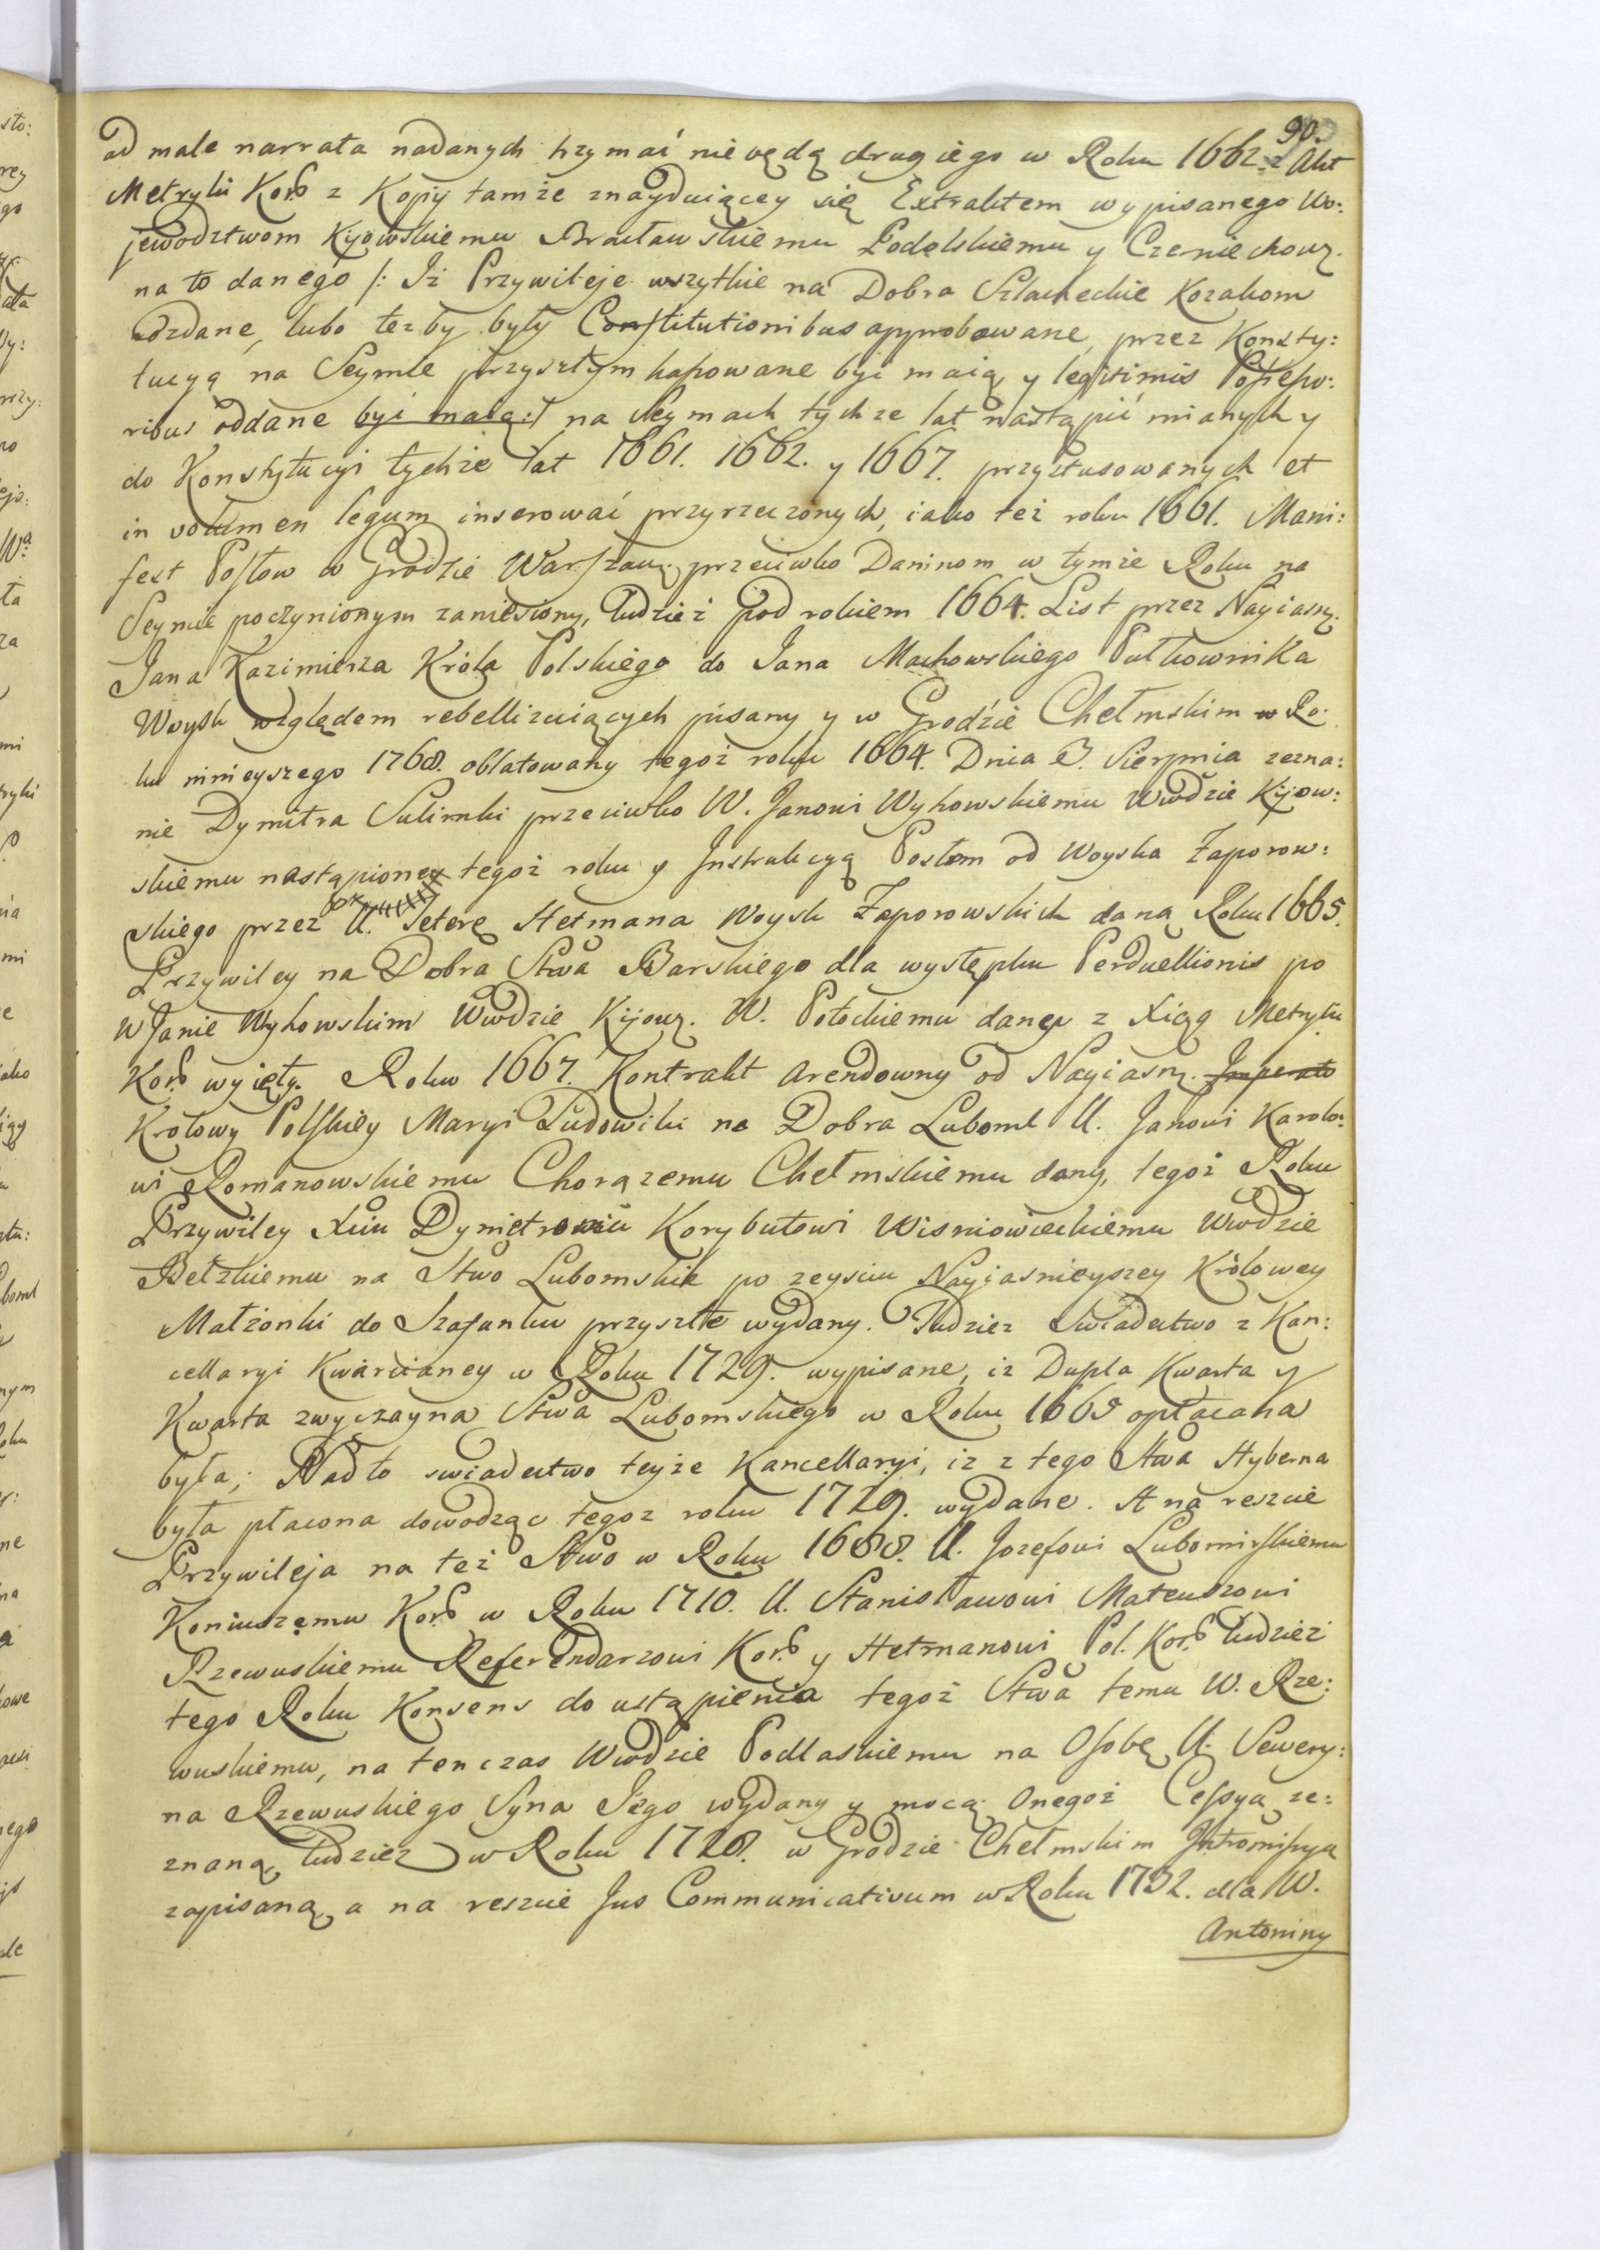 90.
ad male narrata nadanych trzymać nie będą drugiego w Roku 1662. z Akt
Metryki Kor: z Kopij tamże znayduiącey się Extraktem wypisanego Wo:
jewodztwom Kijowskiemu Bracławskiemu Podolskiemu y Czerniechow:
na to danego /: Iż Przywileje wszytkie na Dobra Szlacheckie Kozakom
rozdane, lubo tez by były Constitutionibus approbowane, przez Konsty:
tucyą na Seymie przyszłym kassowane być maią y legitimis Possesso:
ribus oddane być maią :/ na Seymach tychże lat nastąpić mianych y
do Konstytucyi tychże lat 1661. 1662. y 1667. przystusowanych et
in volumen legum inserować przyrzeczonych, iako też roku 1661. Mani:
fest Posłow w Grodzie Warszaw: przeciwko Daninom w tymże Roku na
Seymie poczynionym zaniesiony, tudzież pod rokiem 1664. List przez Nayiasn:
Jana Kazimierza Króla Polskiego do Jana Machowskiego Pułkownika
Woysk względem rebellizuiących pisany y w Grodzie Chełmskim w Ro:
ku ninieyszego 1768. oblatowany tegoż roku 1664. Dnia 8. Sierpnia zezna:
nie Dymitra Sulimki przeciwko W. Janowi Wyhowskiemu Wwdzie Kijow:
skiemu nastąpioney tegoż roku y Instrukcyą Posłom od Woyska Zaporow:
skiego przez U. Teterę Hetmana Woysk Zaporowskich daną Roku 1665.
Przywiley na Dobra Stwa Barskiego dla występku Perduellionis po
W Janie Wyhowskim Wwdzie Kijow: W. Potockiemu dany z Xiąg Metryki
Kor: wyięty. Roku 1667. Kontrakt arendowny od Nayiasn: Imperato
Krolowy Polskiey Maryi Ludowiki na Dobra Luboml U. Janowi Karolo:
wi Romanowskiemu Chorązemu Chełmskiemu dany, tegoż Roku
Przywiley Xciu Dymetrowiu Korybutowi Wisniowieckiemu Wwdzie
Bełzkiemu na Stwo Lubomskie po zeysciu Nayiasnieyszey Krolowey
Małżonki do Szafunku przyszłe wydany. Tudziez Swiadectwo z Kan:
cellaryi Kwarcianey w Roku 1729. wypisane, iz Dupla Kwarta y
Kwarta zwyczayna Stwa Lubomskiego w Roku 1665 opłacana
była; Nadto swiadectwo teyże Kancellaryi, iz z tego Stwa Hyberna
była płacona dowodząc tegoz roku 1729. wydane. A na reszcie
Przywileja na też Stwo w Roku 1688. U. Jozefowi Lubomirskiemu
Koniuszemu Kor: w Roku 1710. U. Stanisławowi Mateuszowi
Rzewuskiemu Referendarzowi Kor: y Hetmanowi Pol. Kor: tudzież
tego Roku Konsens do ustąpienia tegoż Stwa temu W. Rze:
wuskiemu, na tenczas Wwdzie Podlaskiemu na Osobę U. Sewery:
na Rzewuskiego Syna Jego wydany y mocą Onegoż Cessyą ze:
znaną, tudziez w Roku 1728. w Grodzie Chełmskim Intromissya
zapisaną, a na reszcie Jus Communicativum w Roku 1732. dla W.
Antoniny